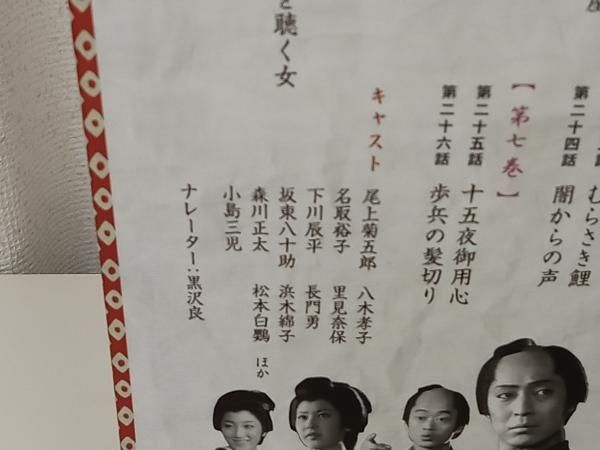 むらさき鯉
第二十四話 闇からの声
【第七巻】
第二十五話 十五夜御用心
第二十六話 歩兵の髪切り
キャスト
尾上菊五郎 八木孝子
名取裕子 里見奈保
下川辰平 長門勇
坂東八十助 浜木綿子
森川正太 松本白鸚 ほか
小島三児
ナレーター:黒沢良
と聴く女